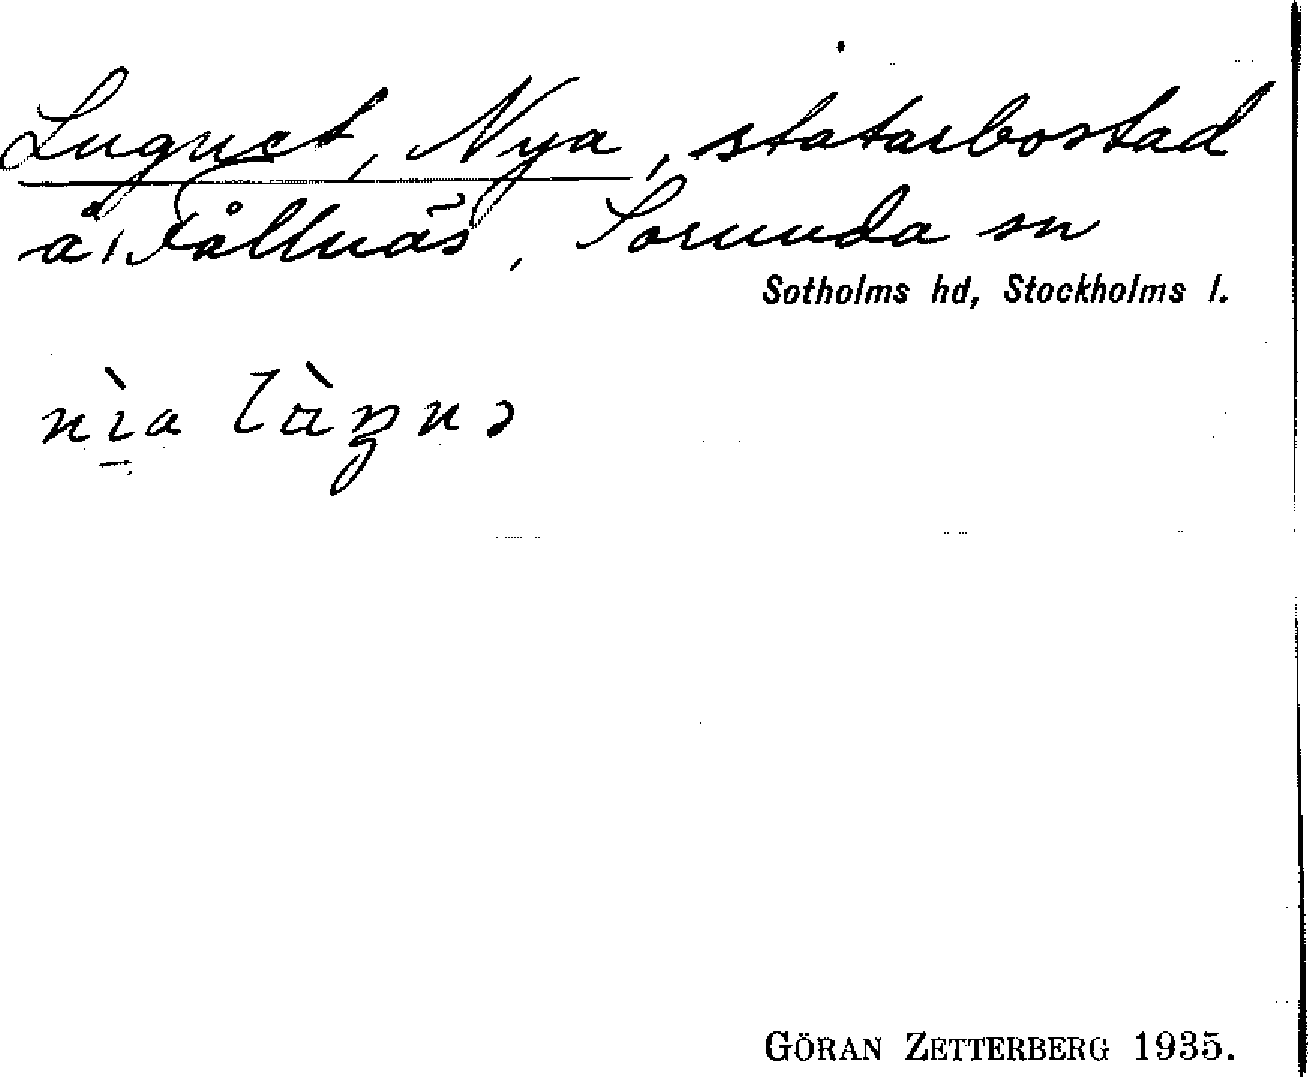 Lugnet, Nya, statarbostad
å Fållnäs, Sorunda sn
Sotholms hd, Stockholms l.
nìa
GÖRAN ZETTERBERG 1935.